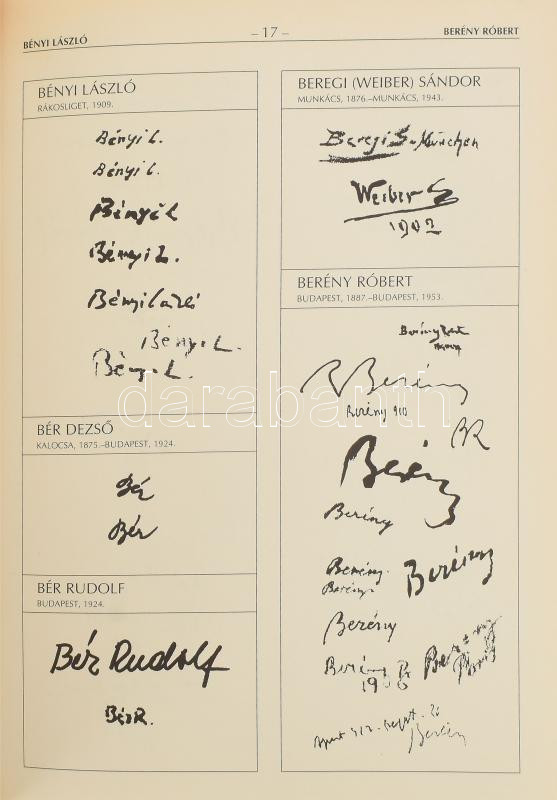 BÉNYI LÁSZLÓ
– 17 –
BERÉNY RÓBERT
BÉNYI LÁSZLÓ
RÁKOSLIGET, 1909.
Bényi L.
Bényi L.
Bényi L
Bényi L.
Bényi László
Bényi L.
Bényi L.
BÉR DEZSŐ
KALOCSA, 1875.–BUDAPEST, 1924.
Bér
Bér
BÉR RUDOLF
BUDAPEST, 1924.
Bér Rudolf
Bér R.
BEREGI (WEIBER) SÁNDOR
MUNKÁCS, 1876.–MUNKÁCS, 1943.
Beregi S. München
Weiber S
1902
BERÉNY RÓBERT
BUDAPEST, 1887.–BUDAPEST, 1953.
Berény
B Berény
Berény 910
BR
Berény
Berény
Berény
Berény
Berény
Berény
Berény R
Berény
912
Berény
darabanth